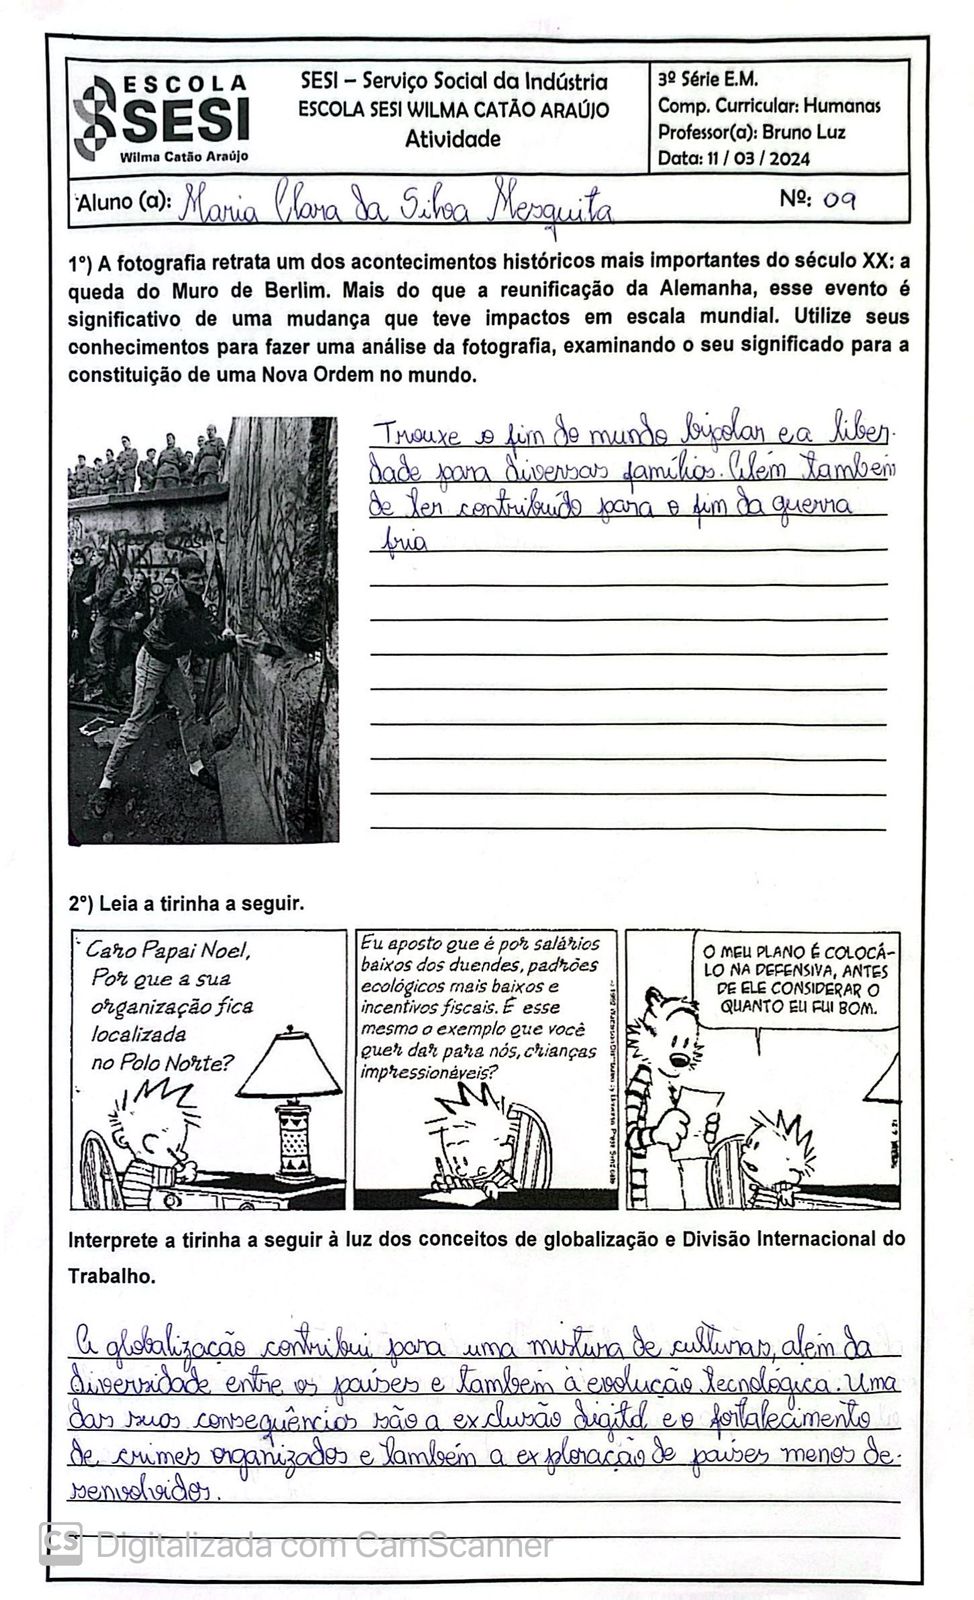 ESCOLA
SESI
Wilma Catão Araújo
SESI – Serviço Social da Indústria
ESCOLA SESI WILMA CATÃO ARAÚJO
Atividade
3º Série E.M.
Comp. Curricular: Humanas
Professor(a): Bruno Luz
Data: 11 / 03 / 2024
Aluno (a): Maria Clara da Silva Mesquita Nº: 09
1°) A fotografia retrata um dos acontecimentos históricos mais importantes do século XX: a
queda do Muro de Berlim. Mais do que a reunificação da Alemanha, esse evento é
significativo de uma mudança que teve impactos em escala mundial. Utilize seus
conhecimentos para fazer uma análise da fotografia, examinando o seu significado para a
constituição de uma Nova Ordem no mundo.
Trouxe o fim do mundo bipolar e a liber-
dade para diversas famílias. Além também
de ter contribuído para o fim da guerra
fria
2°) Leia a tirinha a seguir.
Caro Papai Noel,
Por que a sua
organização fica
localizada
no Polo Norte?
Eu aposto que é por salários
baixos dos duendes, padrões
ecológicos mais baixos e
incentivos fiscais. É esse
mesmo o exemplo que você
quer dar para nós, crianças
impressionáveis?
O MEU PLANO É COLOCÁ-
LO NA DEFENSIVA, ANTES
DE ELE CONSIDERAR O
QUANTO EU FUI BOM.
Interprete a tirinha a seguir à luz dos conceitos de globalização e Divisão Internacional do
Trabalho.
A globalização contribui para uma mistura de culturas, além da
diversidade entre os países e também à evolução tecnológica. Uma
das suas consequências são a exclusão digital e o fortalecimento
de crimes organizados e também a exploração de países menos de-
senvolvidos.
CS Digitalizada com CamScanner